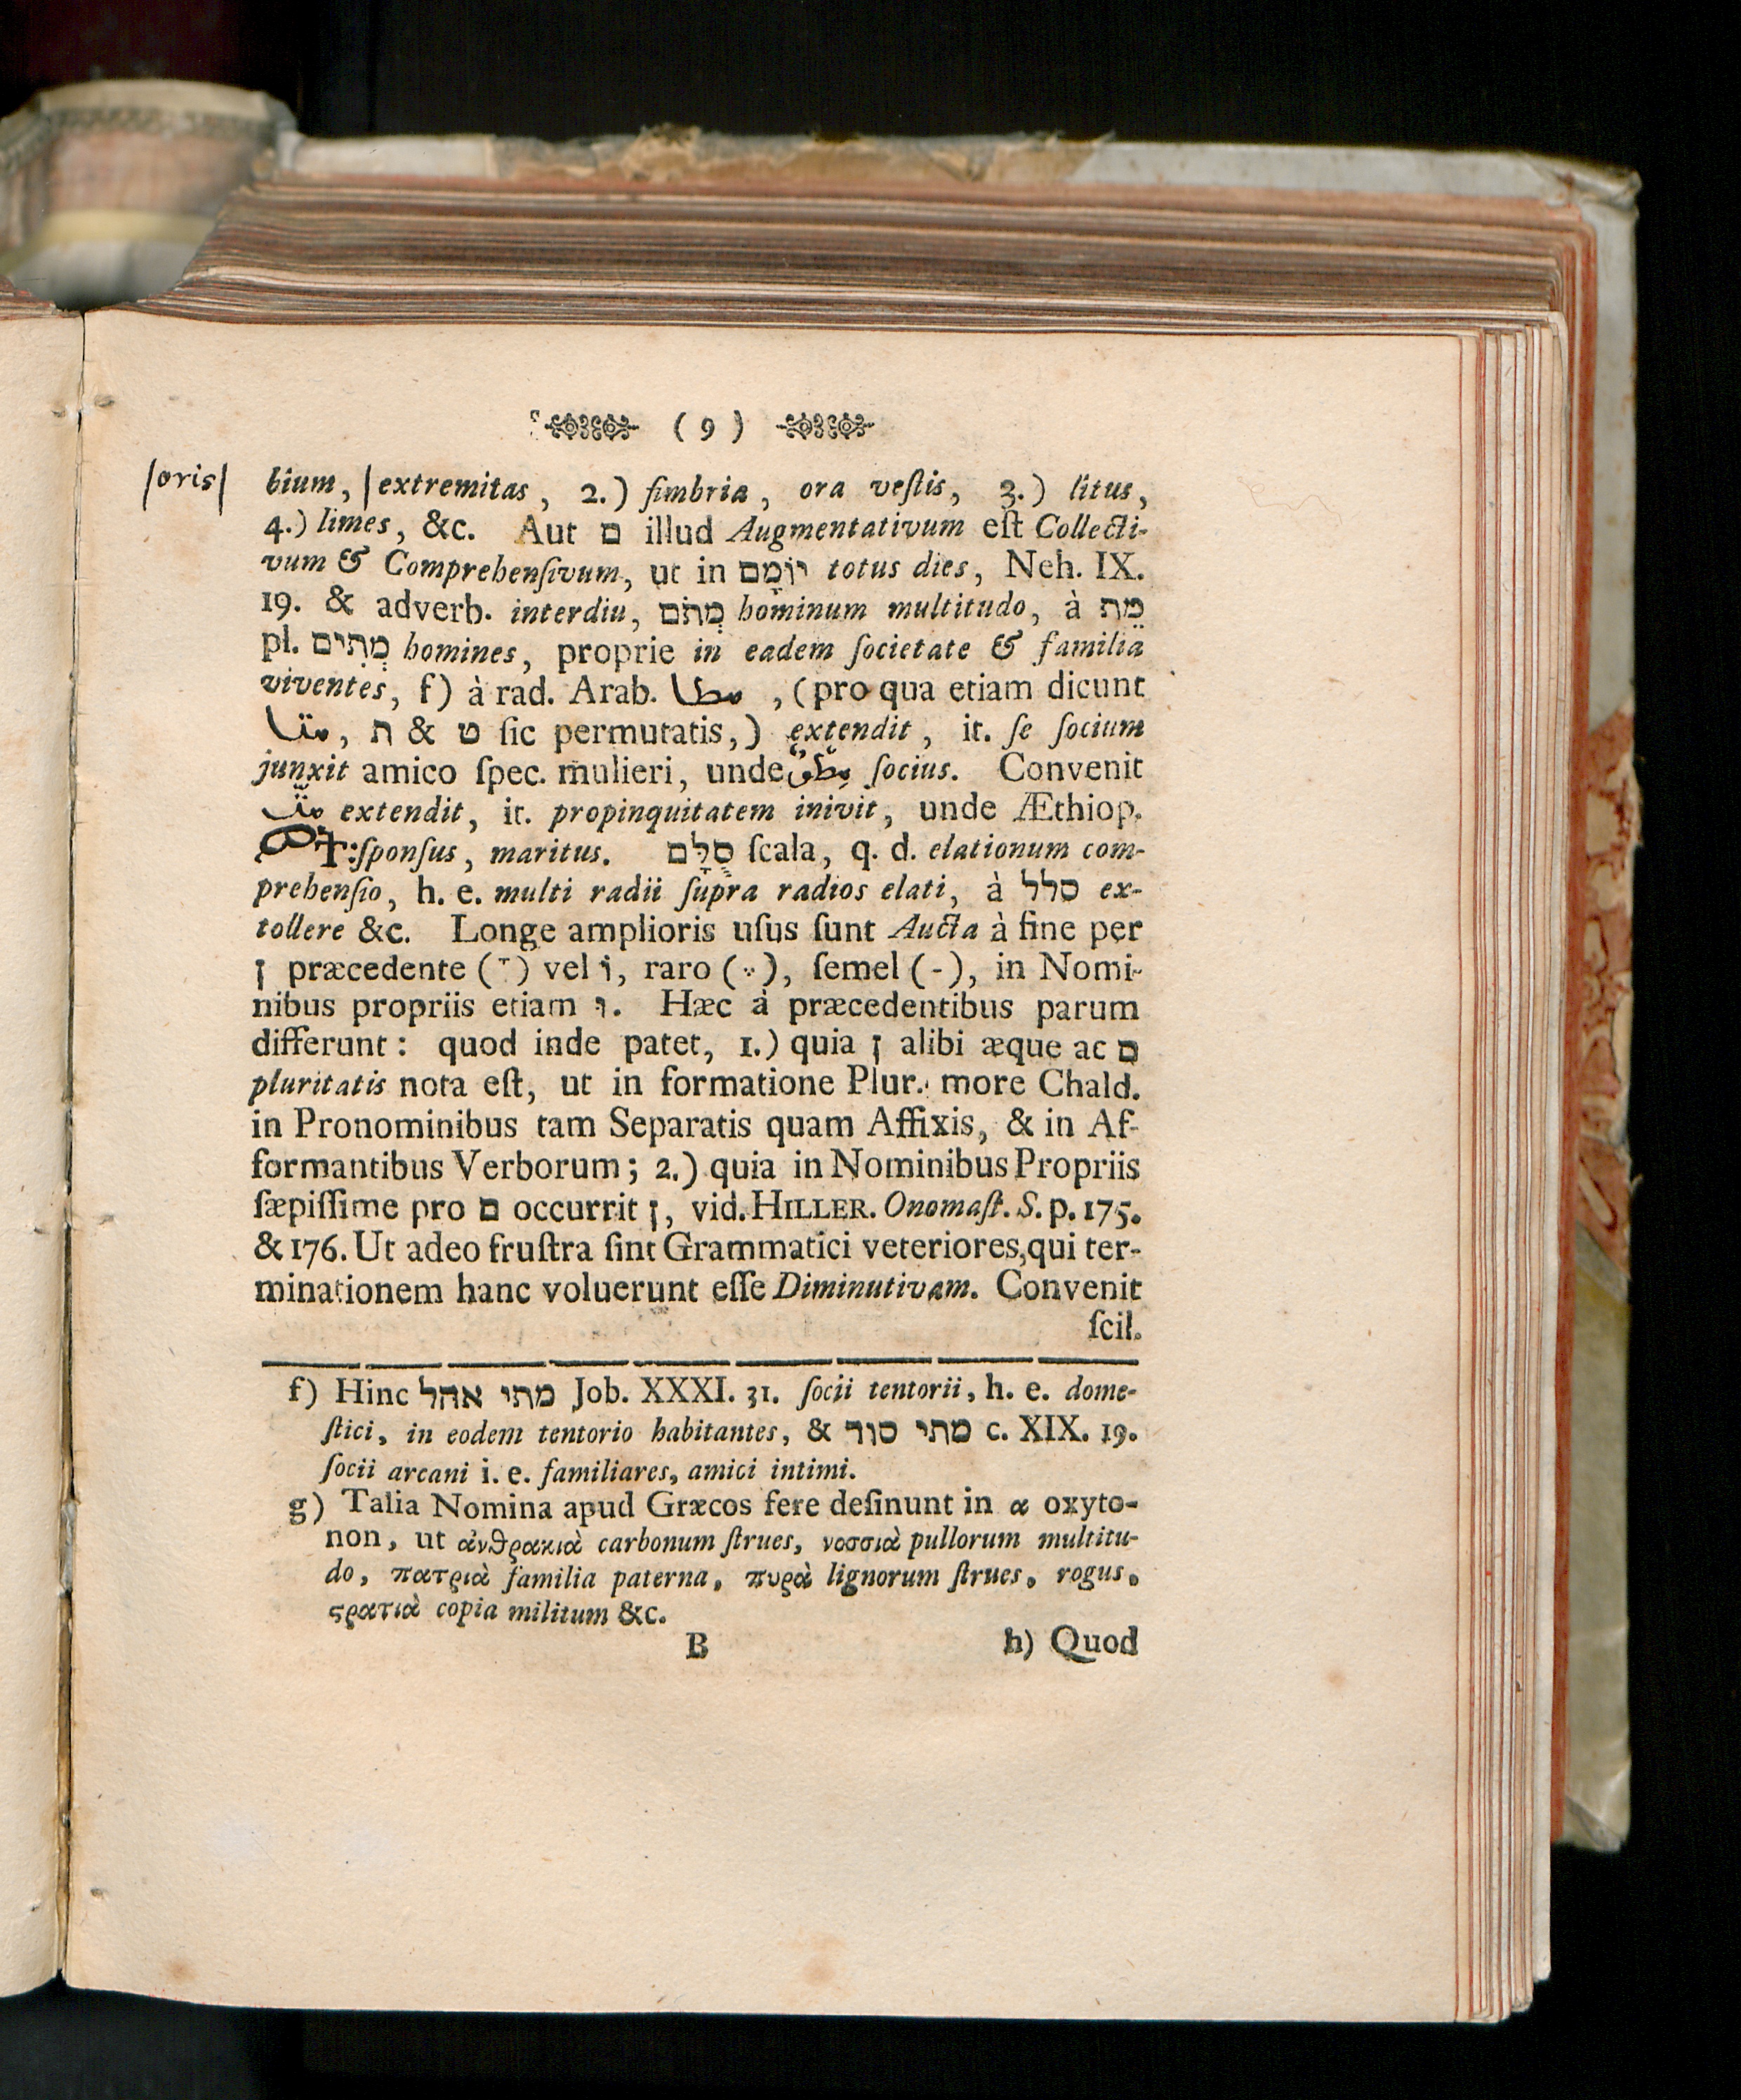 ( 9 )
|oris|
bium, | extremitas, 2.) fimbria, ora veſtis, 3.) litus,
4.) limes, &c. Aut ם illud Augmentativum eſt Collecti-
vum & Comprehenſivum, ut in יוֹמָם totus dies, Neh. IX.
19. & adverb. interdiu, מְתֹם hominum multitudo, à מַת
pl. מְתִים homines, proprie in eadem ſocietate & familia
viventes, f) à rad. Arab. مطا, (pro qua etiam dicunt
متا, ת & ט ſic permutatis,) extendit, it. ſe ſocium
junxit amico ſpec. mulieri, unde ſocius. Convenit
متّ extendit, it. propinquitatem inivit, unde Æthiop.
ምት፡ ſponſus, maritus. סֻלָּם ſcala, q. d. elationum com-
prehenſio, h. e. multi radii ſupra radios elati, à סלל ex-
tollere &c. Longe amplioris uſus ſunt Aucta à fine per
ן præcedente (ָ) vel וֹ, raro (ֶ), ſemel (-), in Nomi-
nibus propriis etiam וּ. Hæc à præcedentibus parum
differunt: quod inde patet, 1.) quia ן alibi æque ac ם
pluritatis nota eſt, ut in formatione Plur. more Chald.
in Pronominibus tam Separatis quam Affixis, & in Af-
formantibus Verborum; 2.) quia in Nominibus Propriis
ſæpiſſime pro ם occurrit ן, vid. HILLER. Onomaſt. S. p. 175.
& 176. Ut adeo fruſtra ſint Grammatici veteriores, qui ter-
minationem hanc voluerunt eſſe Diminutivam. Convenit
ſcil.
f) Hinc מתי אהל Job. XXXI. 31. ſocii tentorii, h. e. dome-
ſtici, in eodem tentorio habitantes, & מתי סוד c. XIX. 19.
ſocii arcani i. e. familiares, amici intimi.
g) Talia Nomina apud Græcos fere deſinunt in α oxyto-
non, ut ἀνθρακιὰ carbonum ſtrues, νοσσιὰ pullorum multitu-
do, πατριὰ familia paterna, πυρὰ lignorum ſtrues, rogus,
ϛρατιὰ copia militum &c.
B h) Quod